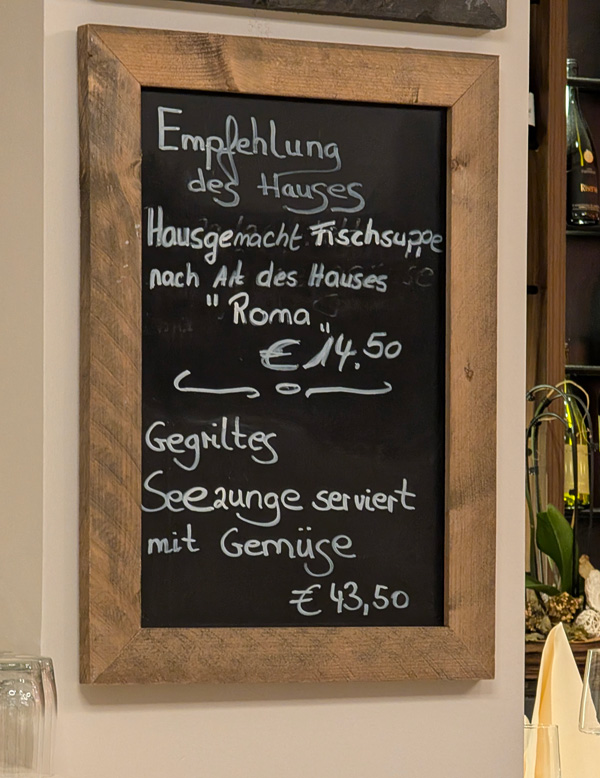 Empfehlung
des Hauses
Hausgemacht Fischsuppe
nach Art des Hauses
"Roma"
€ 14.50
Gegriltes
Seezunge serviert
mit Gemüse
€ 43,50